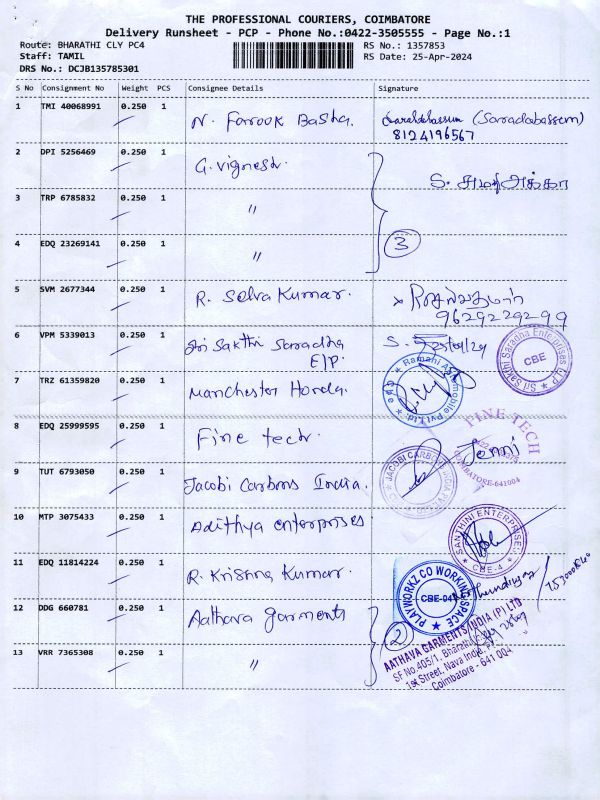 THE PROFESSIONAL COURIERS, COIMBATORE
Delivery Runsheet - PCP - Phone No.:0422-3505555 - Page No.:1
Route: BHARATHI CLY PC4 RS No.: 1357853
Staff: TAMIL RS Date: 25-Apr-2024
DRS No.: DCJB135785301
S No Consignment No Weight PCS Consignee Details Signature
1 TMI 40068991 0.250 1 N. Farook Basha. (Saradabassem)
8124196567
2 DPI 5256469 0.250 1 G. Vignesh.
S.
3 TRP 6785832 0.250 1 "
4 EDQ 23269141 0.250 1 " 3
5 SVM 2677344 0.250 1 R. Selva Kumar.
9629229299
6 VPM 5339013 0.250 1 Sri Sakthi Saradha E/P. S.
Sri Sakthi Saradha Enterprises LLP CBE
7 TRZ 61359820 0.250 1 Manchester Honda.
Ramani Automobile Pvt Ltd. CBE
8 EDQ 25999595 0.250 1 Fine tech. Jenni
FINE TECH
COIMBATORE-641004
9 TUT 6793050 0.250 1 Jacobi Carbons India.
JACOBI CARBONS INDIA PVT
10 MTP 3075433 0.250 1 Adithya enterprises
SANTHINI ENTERPRISES CBE-4
11 EDQ 11814224 0.250 1 R. Krishna Kumar.
PLAYWORKZ CO WORKING SPACE CBE-04
12 DDG 660781 0.250 1 Aathava garments 2
13 VRR 7365308 0.250 1 "
AATHAVA GARMENTS INDIA (P) LTD
SF No.405/1, Bharathi
1st Street, Nava India,
Coimbatore - 641 004